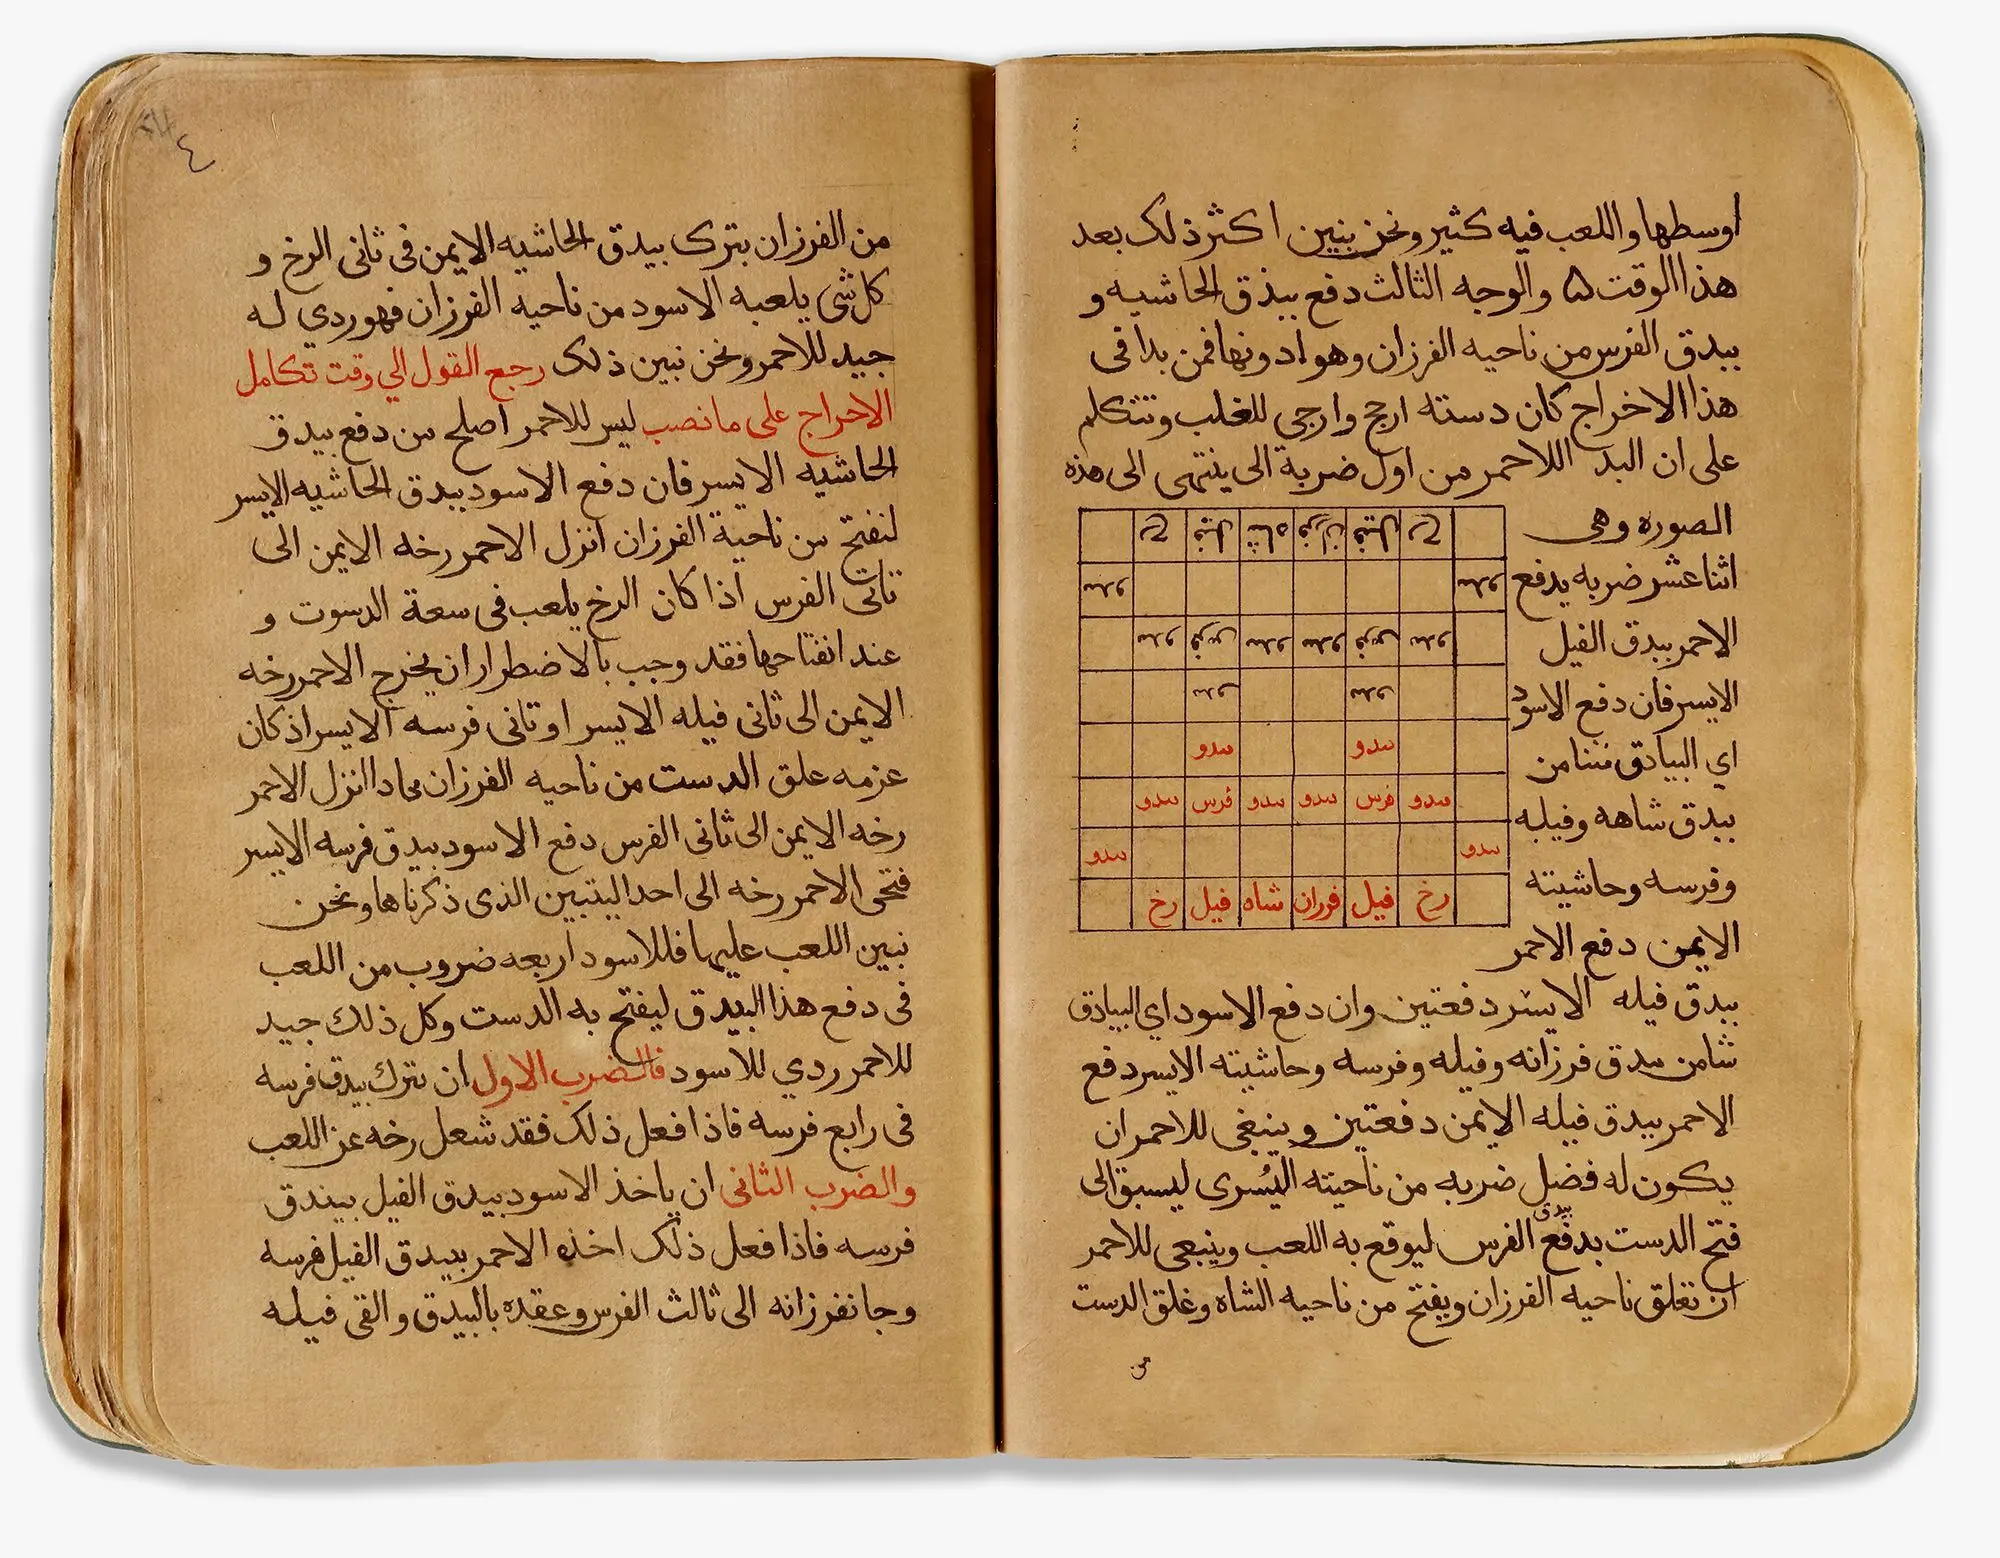 اوسطها واللعب فيه كثير ونحن نبين اكثر ذلك بعد
هذا الوقت ۵ والوجه الثالث دفع بيذق الحاشيه و
بيدق الفرس من ناحيه الفرزان وهو ادونها فمن بدا فى
هذا الاخراج كان دسته ارجح وارجى للغلب ونتكلم
على ان البد اللاحمر من اول ضربة الى ينتهى الى هذه
الصوره وهى
اثنا عشر ضربه يدفع
الاحمر بيدق الفيل
الايسر فان دفع الاسود
اي البيادق شا من
بيدق شاهه وفيله
وفرسه وحاشيته
الايمن دفع الاحمر
رخ فيل فرزان شاه فيل رخ
بيدو بيدو
بيدو فرس بيدو بيدو فرس بيدو
بيدو بيدو
بيدو بيدو
بيدو فرس بيدو بيدو فرس بيدو
بيدو بيدو
رخ فيل فرزان شاه فيل رخ
بيدق فيله الايسر دفعتين وان دفع الاسود اي البيادق
شا من بيدق فرزانه وفيله وفرسه وحاشيته الايسر دفع
الاحمر بيدق فيله الايمن دفعتين وينبغى للاحمر ان
يكون له فضل ضربه من ناحيته اليُسرى ليسبق الى
فتح الدست بدفع بيدق الفرس ليوقع به اللعب وينبغى للاحمر
ان تغلق ناحيه الفرزان ويفتح من ناحيه الشاه وغلق الدست
من
٤
من الفرزان بترك بيدق الحاشيه الايمن فى ثانى الرخ و
كل شى يلعبه الاسود من ناحيه الفرزان فهو ردي له
جيد للاحمر ونحن نبين ذلك رجع القول الي وقت تكامل
الاخراج على ما نصب ليس للاحمر اصلح من دفع بيدق
الحاشيه الايسر فان دفع الاسود بيدق الحاشيه الايسر
لنفتح من ناحية الفرزان انزل الاحمر رخه الايمن الى
ثانى الفرس اذا كان الرخ يلعب فى سعة الدسوت و
عند انفتاحها فقد وجب بالاضطرار ان يخرج الاحمر رخه
الايمن الى ثانى فيله الايسر او ثانى فرسه الايسر اذ كان
عزمه علق الدست من ناحيه الفرزان فاذا انزل الاحمر
رخه الايمن الى ثانى الفرس دفع الاسود بيدق فرسه الايسر
فتحى الاحمر رخه الى احد البيتين الذى ذكرناها ونحن
نبين اللعب عليها فللاسود اربعه ضروب من اللعب
فى دفع هذا البيدق ليفتح به الدست وكل ذلك جيد
للاحمر ردي للاسود فالضرب الاول ان يترك بيدق فرسه
فى رابع فرسه فاذا فعل ذلك فقد شعل رخه عن اللعب
والضرب الثانى ان ياخذ الاسود بيدق الفيل ببيدق
فرسه فاذا فعل ذلك اخذه الاحمر ببيدق الفيل فرسه
وجا نفرزانه الى ثالث الفرس وعقده بالبيدق والقى فيله